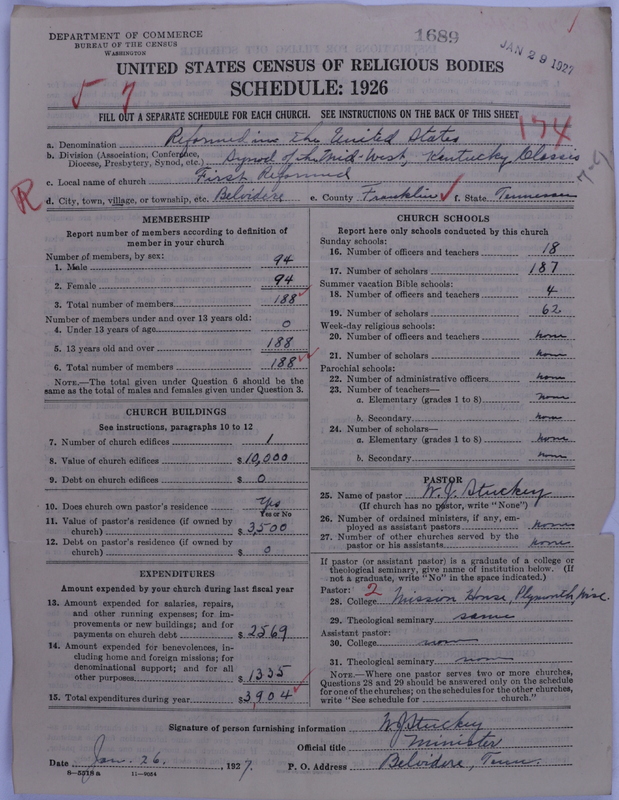 DEPARTMENT OF COMMERCE
BUREAU OF THE CENSUS
WASHINGTON
1689
JAN 29 1927
UNITED STATES CENSUS OF RELIGIOUS BODIES
SCHEDULE: 1926
5 7
FILL OUT A SEPARATE SCHEDULE FOR EACH CHURCH. SEE INSTRUCTIONS ON THE BACK OF THIS SHEET
174
a. Denomination Reformed in the United States
b. Division (Association, Conference, Diocese, Presbytery, Synod, etc.) Synod of the Mid-West, Kentucky Classis
7-9
c. Local name of church First Reformed
R
d. City, town, village, or township, etc. Belvidere e. County Franklin f. State Tennessee
MEMBERSHIP
Report number of members according to definition of
member in your church
Number of members, by sex:
1. Male 94
2. Female 94
3. Total number of members 188
Number of members under and over 13 years old:
4. Under 13 years of age 0
5. 13 years old and over 188
6. Total number of members 188
NOTE.—The total given under Question 6 should be the
same as the total of males and females given under Question 3.
CHURCH BUILDINGS
See instructions, paragraphs 10 to 12
7. Number of church edifices 1
8. Value of church edifices $10,000
9. Debt on church edifices $ 0
10. Does church own pastor's residence Yes
Yes or No
11. Value of pastor's residence (if owned by
church) $3,500
12. Debt on pastor's residence (if owned by
church) $ 0
EXPENDITURES
Amount expended by your church during last fiscal year
13. Amount expended for salaries, repairs,
and other running expenses; for im-
provements or new buildings; and for
payments on church debt $2569
14. Amount expended for benevolences, in-
cluding home and foreign missions; for
denominational support; and for all
other purposes $1335
15. Total expenditures during year $3,904
CHURCH SCHOOLS
Report here only schools conducted by this church
Sunday schools:
16. Number of officers and teachers 18
17. Number of scholars 187
Summer vacation Bible schools:
18. Number of officers and teachers 4
19. Number of scholars 62
Week-day religious schools:
20. Number of officers and teachers none
21. Number of scholars none
Parochial schools:
22. Number of administrative officers none
23. Number of teachers—
a. Elementary (grades 1 to 8) none
b. Secondary none
24. Number of scholars—
a. Elementary (grades 1 to 8) none
b. Secondary none
PASTOR
25. Name of pastor W. J. Stuckey
(If church has no pastor, write "None")
26. Number of ordained ministers, if any, em-
ployed as assistant pastors none
27. Number of other churches served by the
pastor or his assistants none
If pastor (or assistant pastor) is a graduate of a college or
theological seminary, give name of institution below. (If
not a graduate, write "No" in the space indicated.)
Pastor: 2
28. College Mission House, Plymouth, Wisc.
29. Theological seminary same
Assistant pastor:
30. College none
31. Theological seminary none
NOTE.—Where one pastor serves two or more churches,
Questions 28 and 29 should be answered only on the schedule
for one of the churches; on the schedules for the other churches,
write "See schedule for church."
Signature of person furnishing information W. J. Stuckey
Official title Minister
Date Jan. 26, 1927. P. O. Address Belvidere, Tenn.
8-5518 a 11-9054